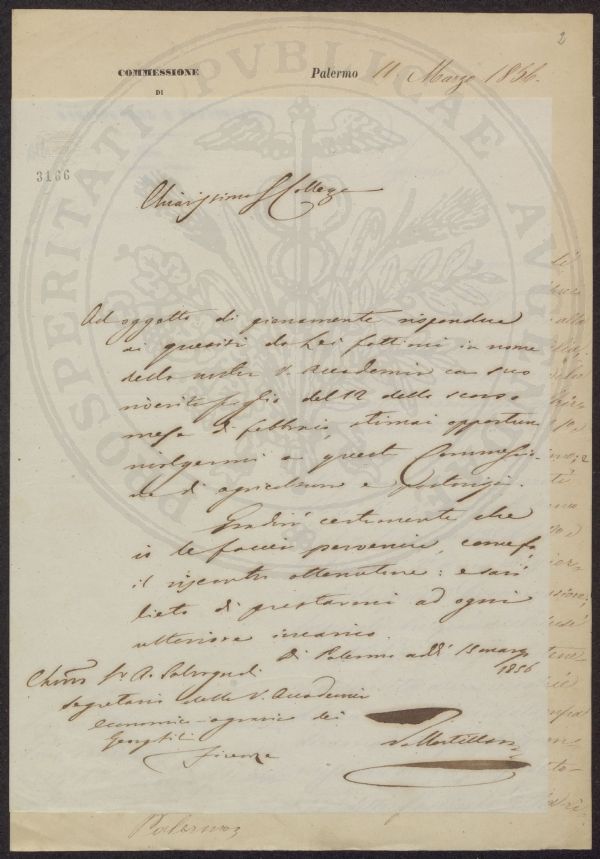 2
COMMESSIONE
DI
Palermo 11 Marzo 1856.
3166
PROSPERITATI PVBLICAE AVGENDAE
Chiarissimo Sr. Collega
Ad oggetto di pienamente rispondere
ai quesiti da Lei fattimi in nome
della nostra R. Accademia con suo
foglio del 12 dello scorso
mese di febbraio, stimai opportuno
rivolgermi a questa Commessio-
ne di agricoltura e pastorizia.
Gradirà certamente che
io le faccia pervenire, come fo,
il riscontro ottenutone: e sarò
lieto di prestarmi ad ogni
ulteriore incarico.
Di Palermo addì 15 marzo
1856
Segretario della R. Accademia
economico-agraria dei
Georgofili
Firenze
Palermo